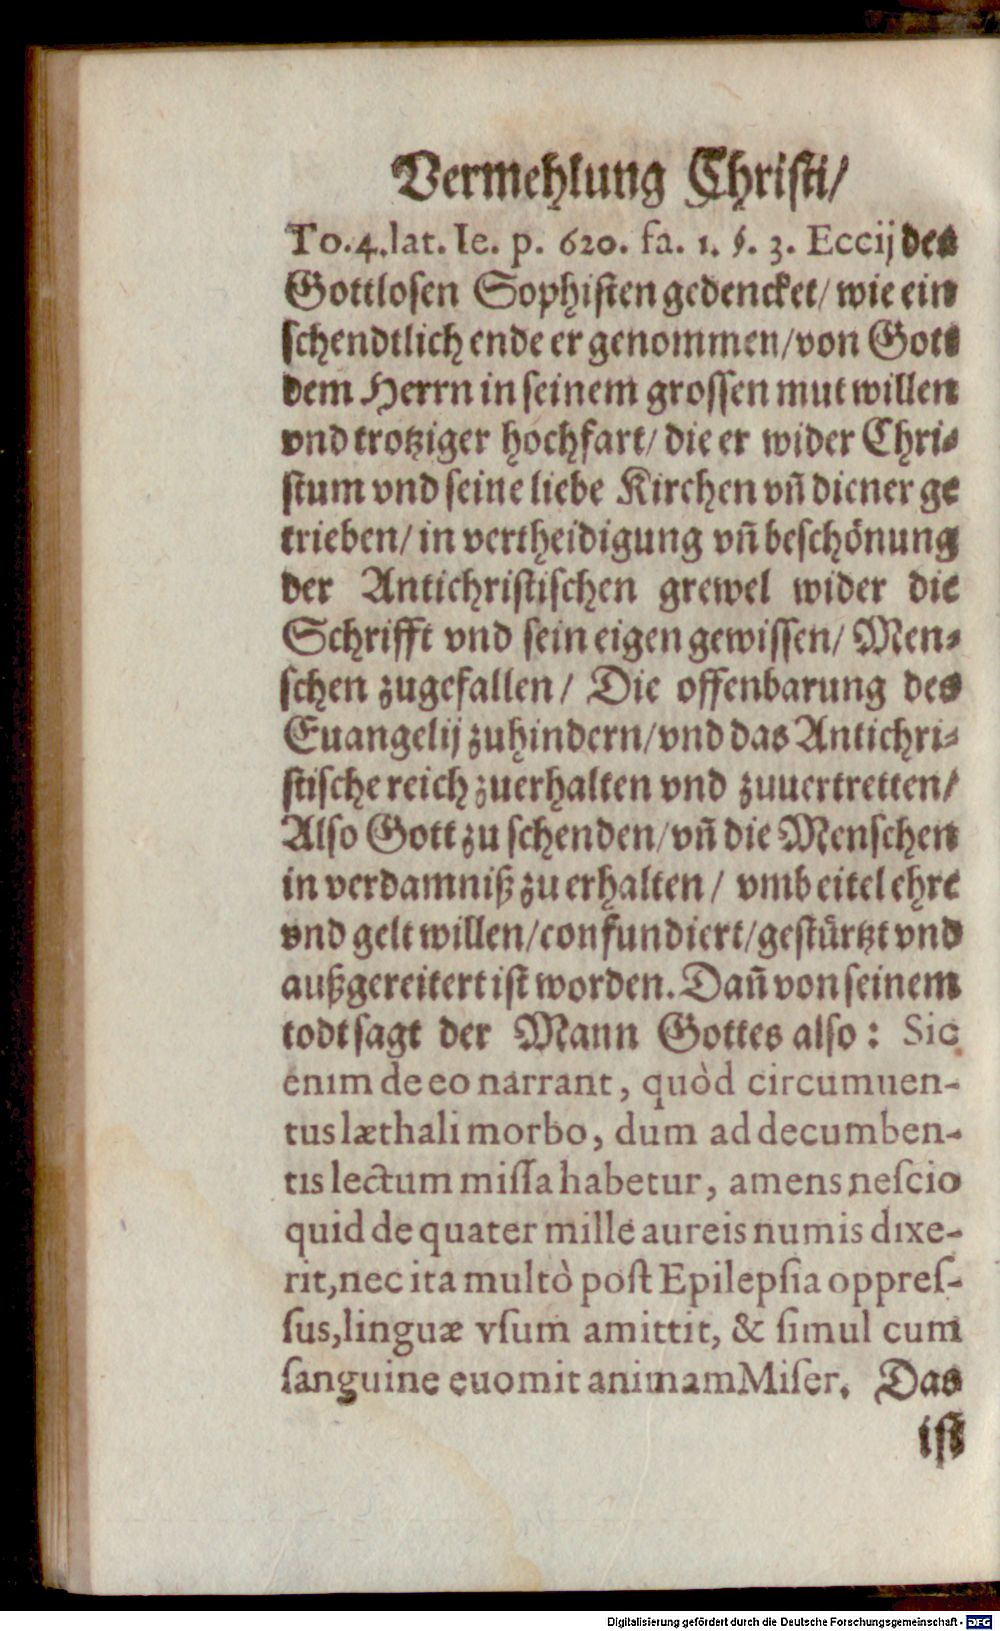 Vermehlung Christi/
To.4.lat. Ie. p. 620. fa. 1. §. 3. Eccij des
Gottlosen Sophisten gedencket/ wie ein
schendtlich ende er genommen/von Gott
dem Herrn in seinem grossen mut willen
vnd trotziger hochfart/ die er wider Chri-
stum vnd seine liebe Kirchen vñ diener ge
trieben/ in vertheidigung vñ beschönung
der Antichristischen grewel wider die
Schrifft vnd sein eigen gewissen/ Men-
schen zugefallen/ Die offenbarung des
Euangelij zuhindern/vnd das Antichri-
stische reich zuerhalten vnd zuuertretten/
Also Gott zu schenden/vñ die Menschen
in verdamniß zu erhalten/ vmb eitel ehre
vnd gelt willen/confundiert/gestürtzt vnd
außgereitert ist worden. Dañ von seinem
todt sagt der Mann Gottes also: Sic
enim de eo narrant, quòd circumuen-
tus læthali morbo, dum ad decumben-
tis lectum miſſa habetur, amens neſcio
quid de quater mille aureis numis dixe-
rit, nec ita multò poſt Epilepſia oppreſ-
ſus, linguæ vſum amittit, & ſimul cum
ſanguine euomit animam Miſer. Das
ist
Digitalisierung gefördert durch die Deutsche Forschungsgemeinschaft - DFG